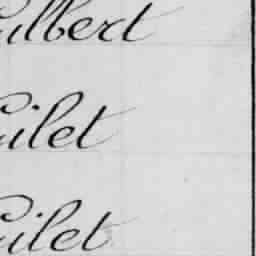 ulbert
ilet
ilet